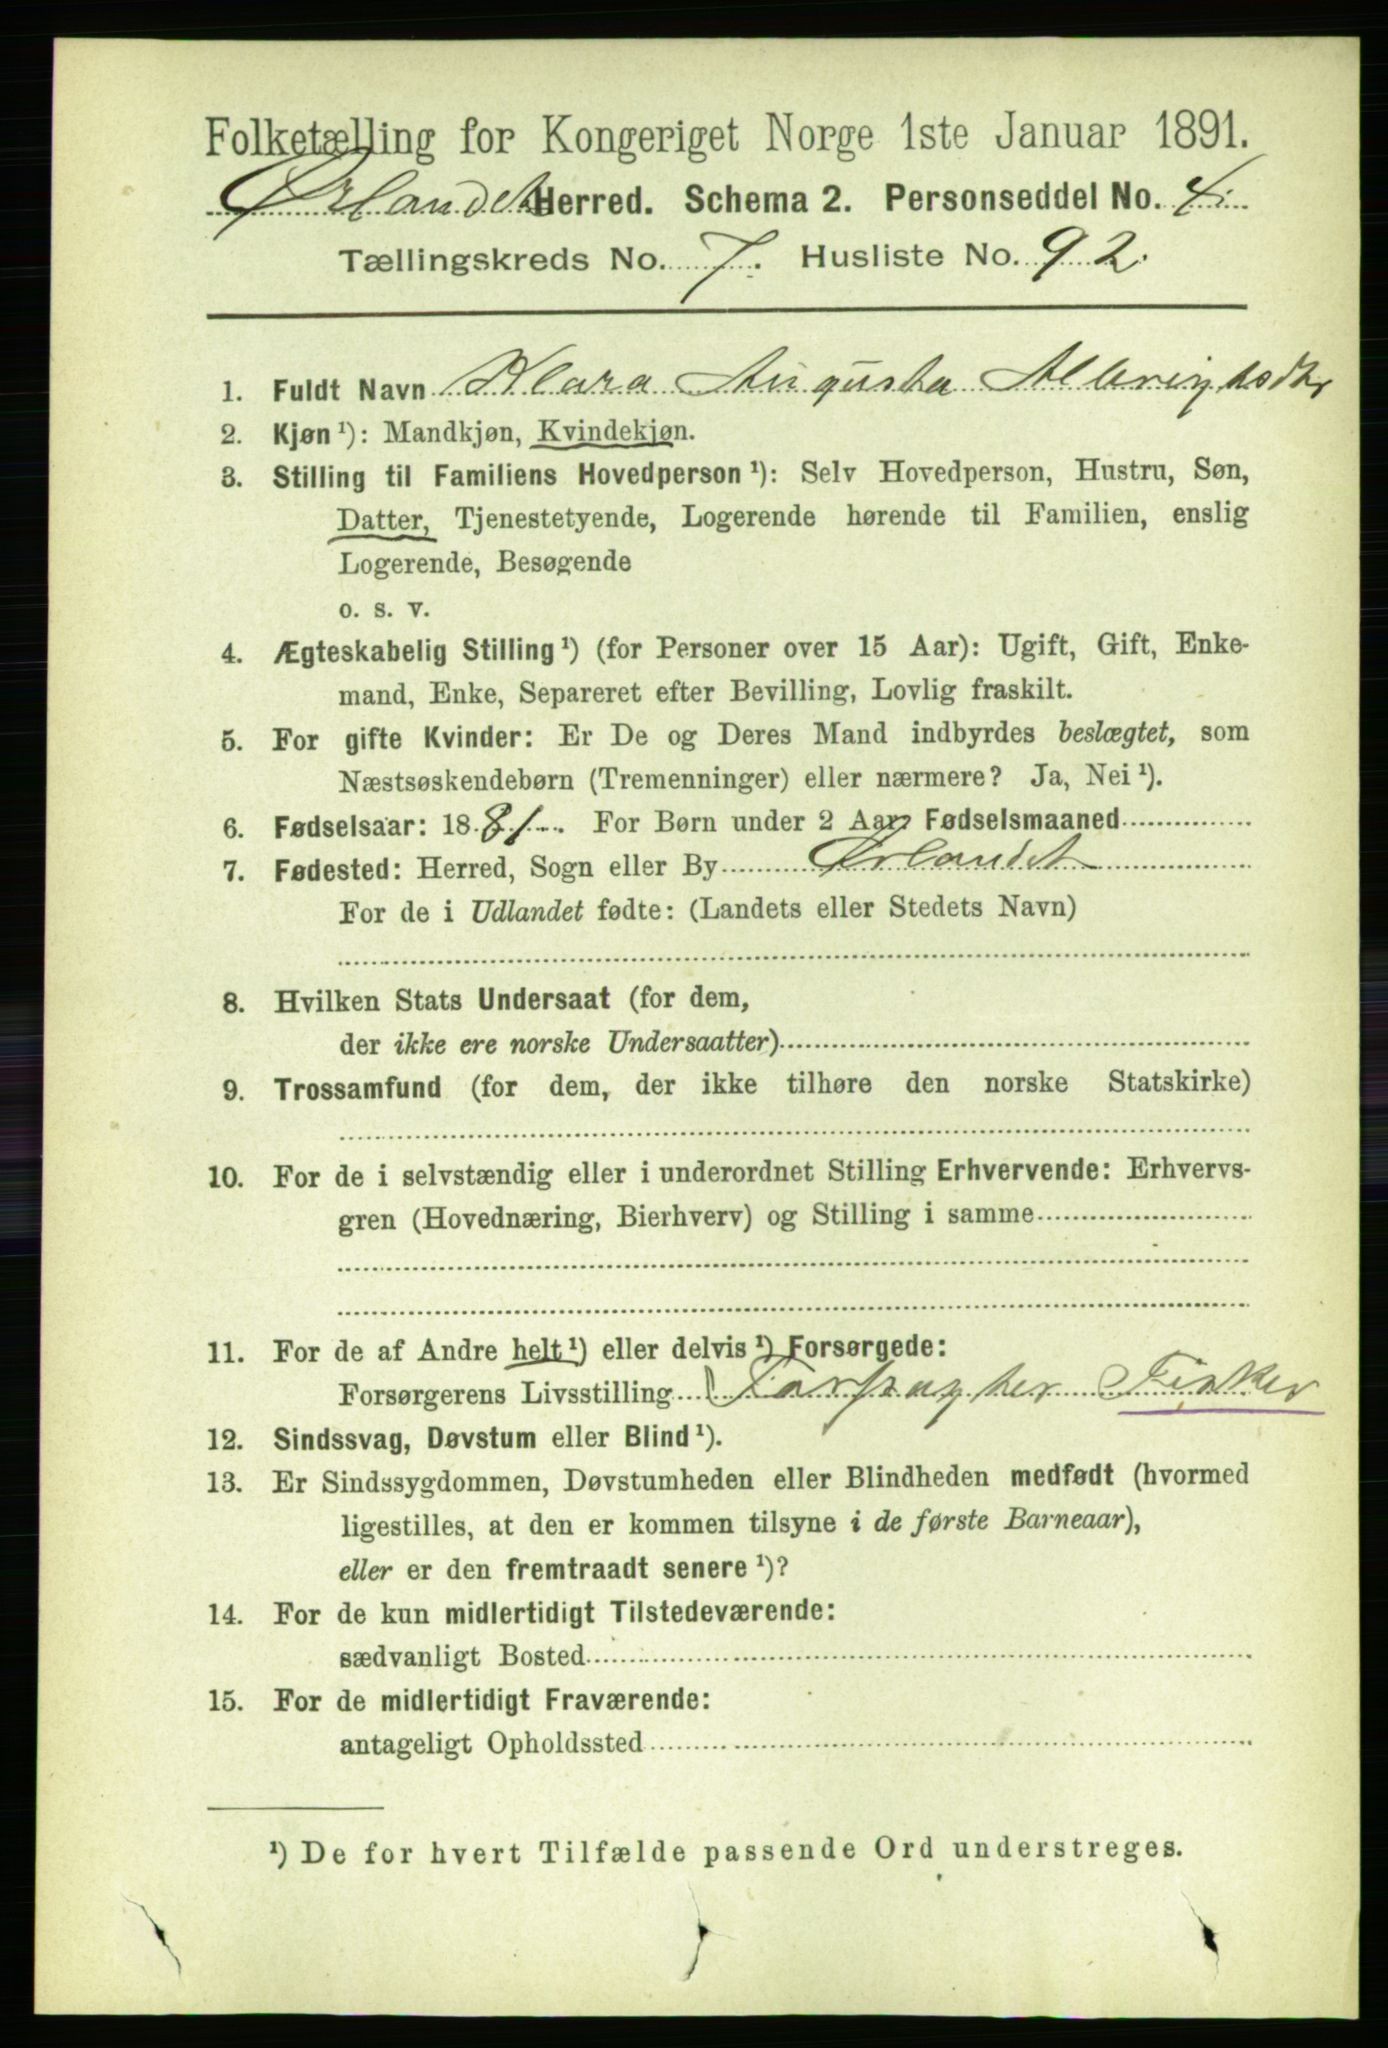 Folketælling for Kongeriget Norge 1ste Januar 1891.
Ørlandet Herred. Schema 2. Personseddel No. 4.
Tællingskreds No. 7. Husliste No. 92.
1. Fuldt Navn Klara Augusta Albrigtsdtr
2. Kjøn ¹): Mandkjøn, Kvindekjøn.
3. Stilling til Familiens Hovedperson ¹): Selv Hovedperson, Hustru, Søn,
Datter, Tjenestetyende, Logerende hørende til Familien, enslig
Logerende, Besøgende
o. s. v.
4. Ægteskabelig Stilling ¹) (for Personer over 15 Aar): Ugift, Gift, Enke-
mand, Enke, Separeret efter Bevilling, Lovlig fraskilt.
5. For gifte Kvinder: Er De og Deres Mand indbyrdes beslægtet, som
Næstsøskendebørn (Tremenninger) eller nærmere? Ja, Nei ¹).
6. Fødselsaar: 1881. For Børn under 2 Aar Fødselsmaaned
7. Fødested: Herred, Sogn eller By Ørlandet
For de i Udlandet fødte: (Landets eller Stedets Navn)
8. Hvilken Stats Undersaat (for dem,
der ikke ere norske Undersaatter)
9. Trossamfund (for dem, der ikke tilhøre den norske Statskirke)
10. For de i selvstændig eller i underordnet Stilling Erhvervende: Erhvervs-
gren (Hovednæring, Bierhverv) og Stilling i samme
11. For de af Andre helt ¹) eller delvis ¹) Forsørgede:
Forsørgerens Livsstilling Forpagter Fisker
12. Sindssvag, Døvstum eller Blind ¹).
13. Er Sindssygdommen, Døvstumheden eller Blindheden medfødt (hvormed
ligestilles, at den er kommen tilsyne i de første Barneaar),
eller er den fremtraadt senere ¹)?
14. For de kun midlertidigt Tilstedeværende:
sædvanligt Bosted
15. For de midlertidigt Fraværende:
antageligt Opholdssted
¹) De for hvert Tilfælde passende Ord understreges.